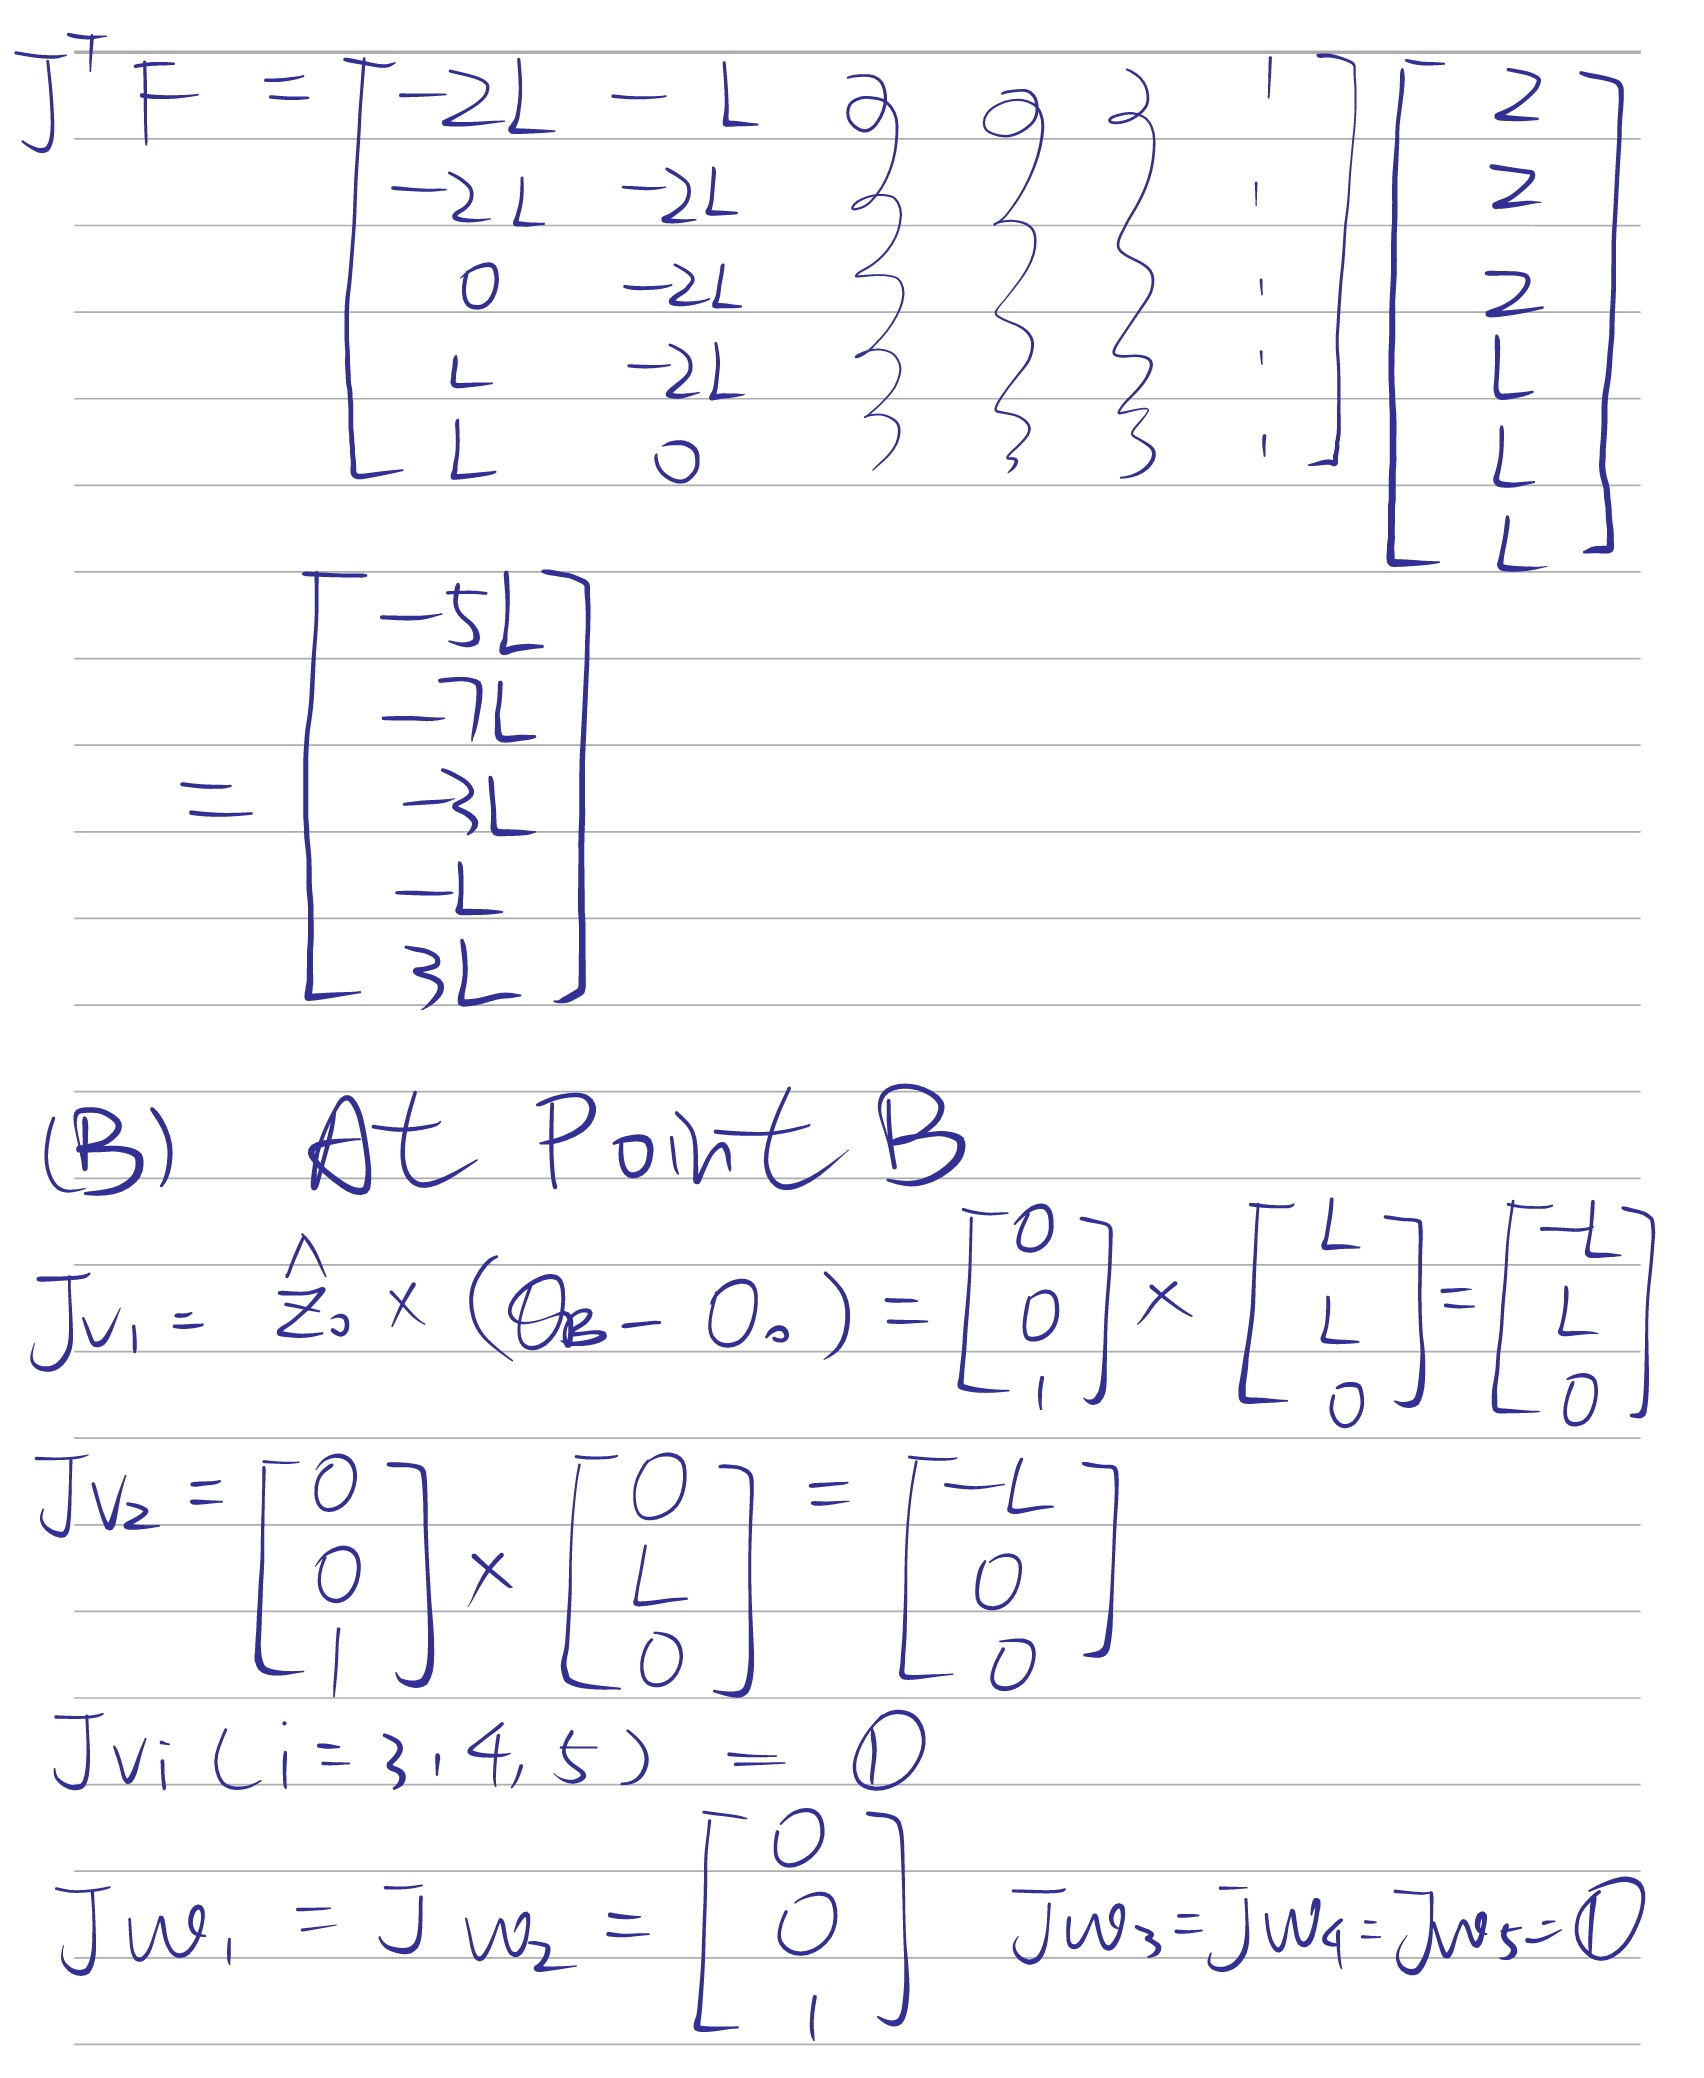 J^T F = [ -2L -L 0 0 0 1 ] [ 2
-2L -2L 1 2
0 -2L 1 2
L -2L 1 L
L 0 1 L
L ]
= [ -5L
-7L
-3L
-L
3L ]
(B) At Point B
Jv1 = ẑ0 × (OB - O0) = [ 0 0 1 ] × [ L L 0 ] = [ -L L 0 ]
Jv2 = [ 0 0 1 ] × [ 0 L 0 ] = [ -L 0 0 ]
Jvi (i = 3, 4, 5) = 0
Jw1 = Jw2 = [ 0 0 1 ] Jw3 = Jw4 = Jw5 = 0